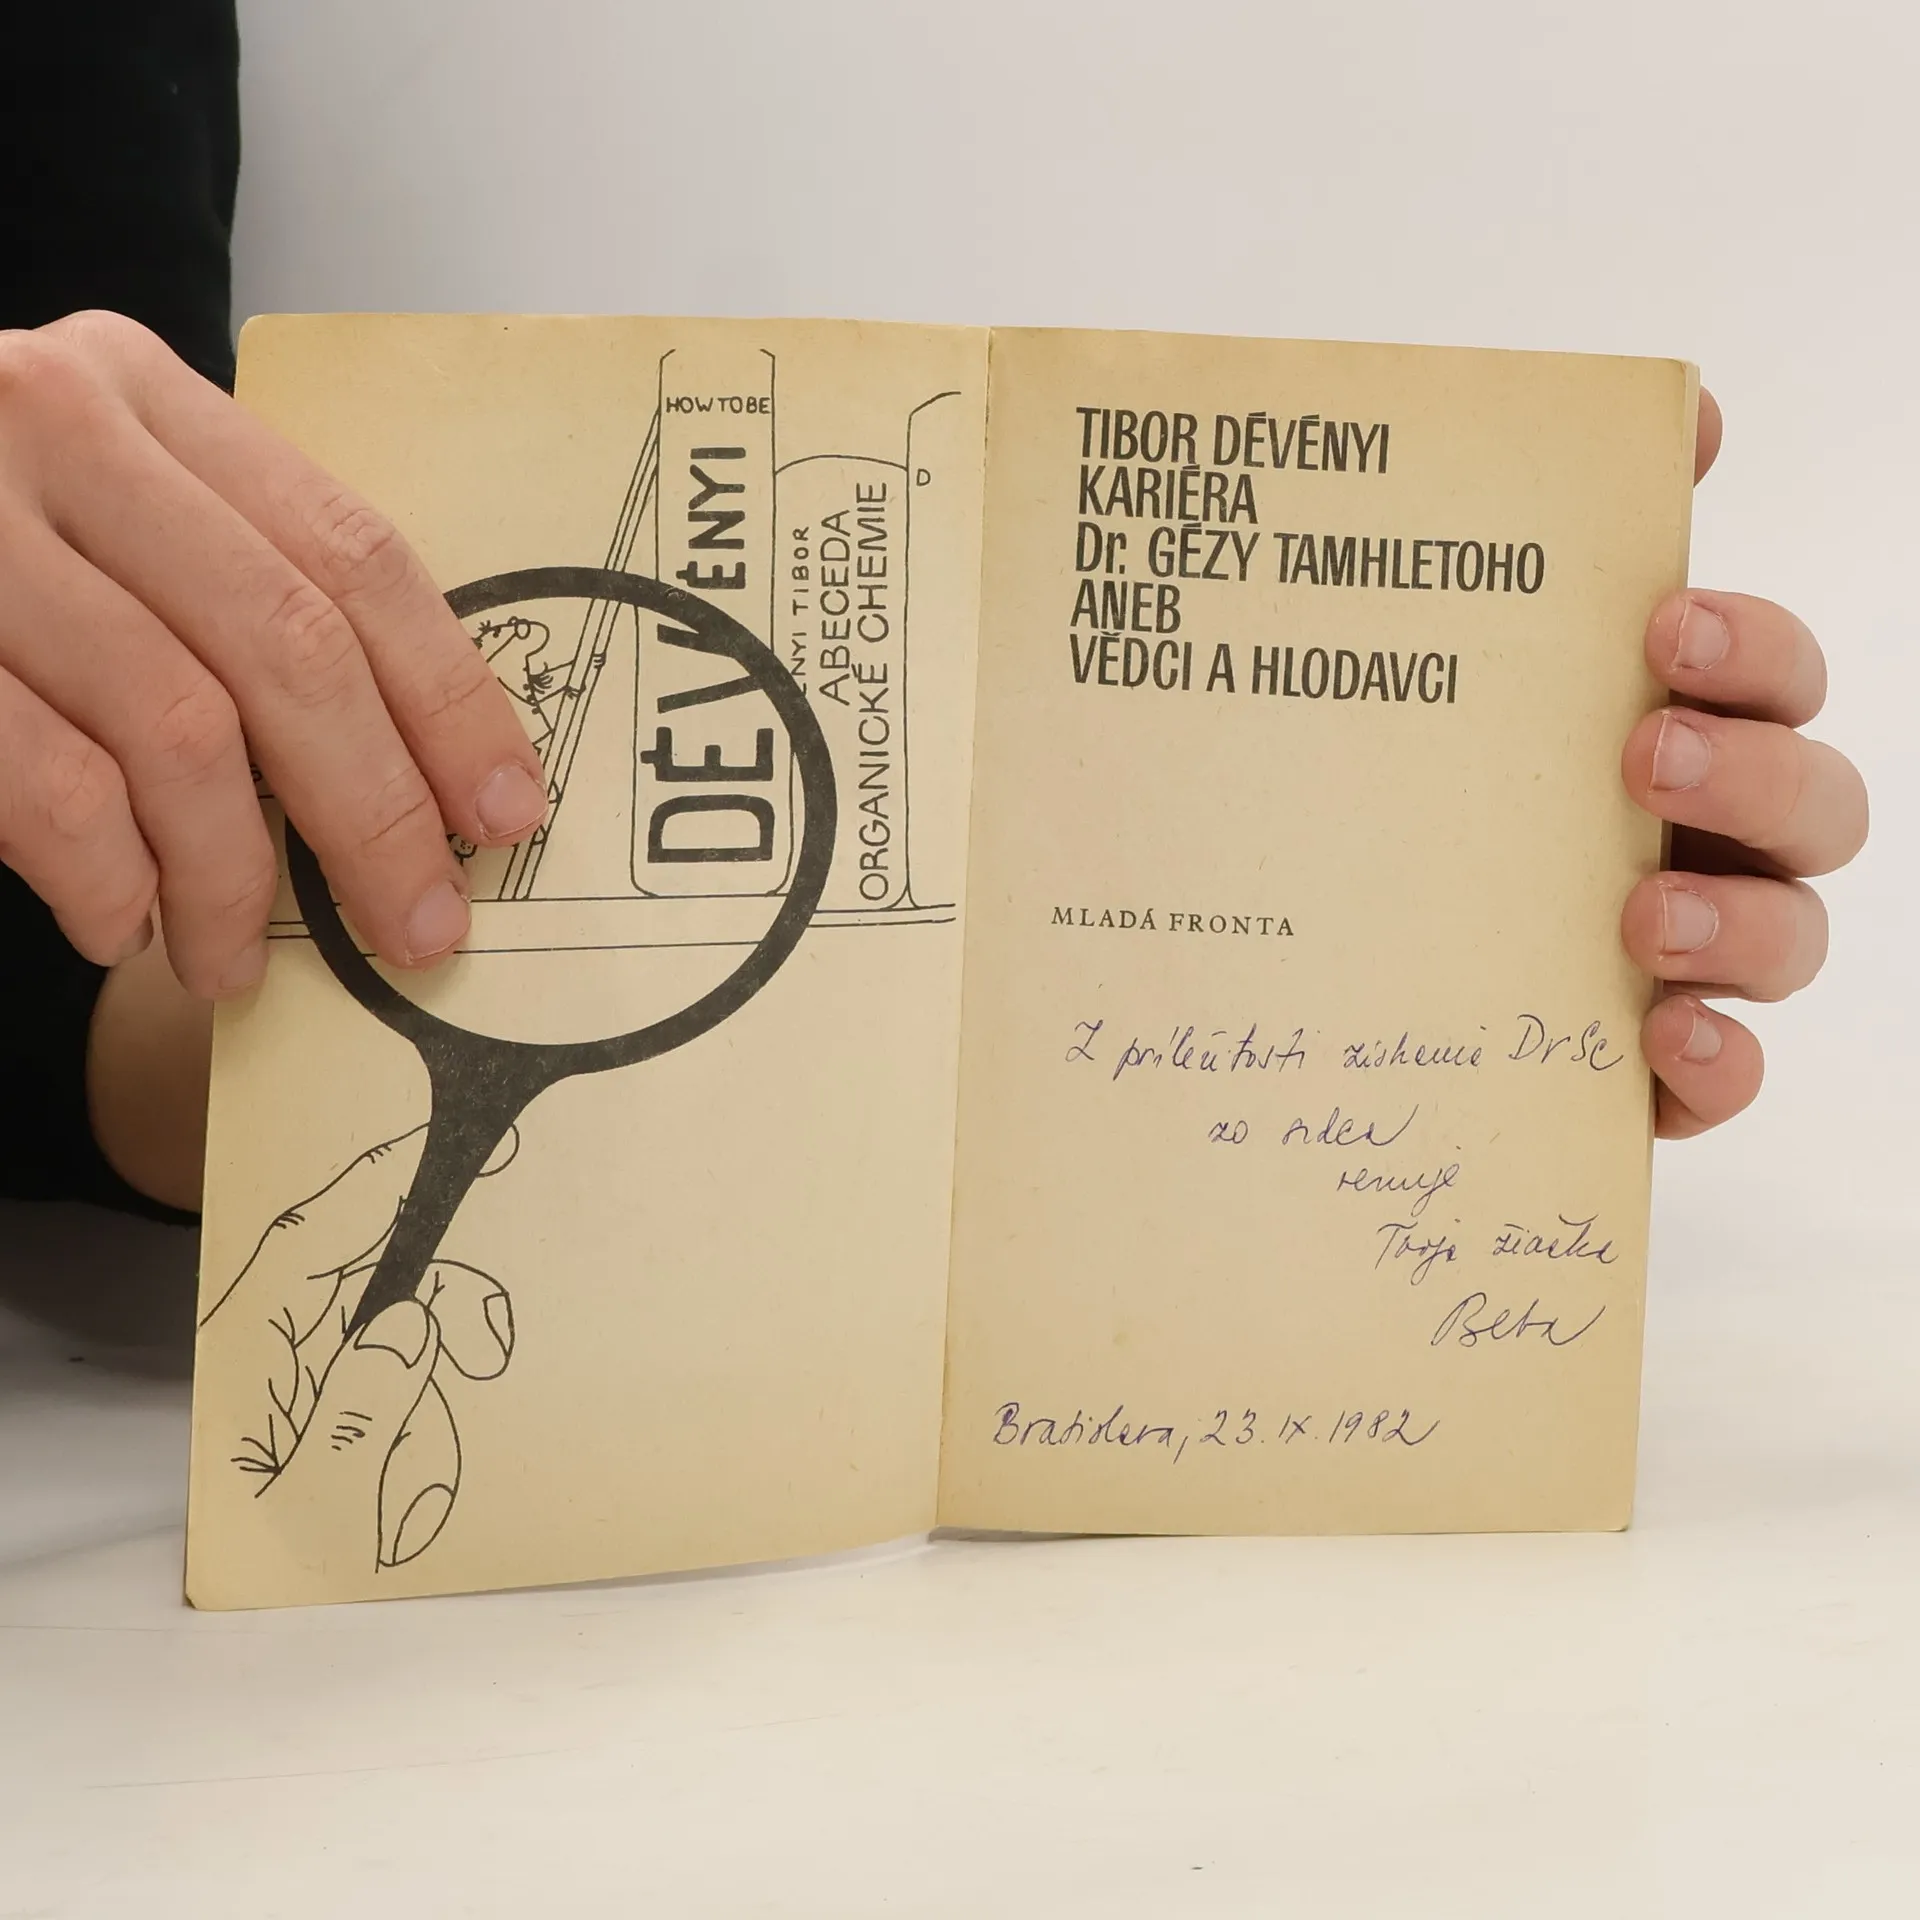 HOW TO BE
DÉVÉNYI
ENYI TIBOR
ABECEDA
ORGANICKÉ CHEMIE
D
TIBOR DÉVÉNYI
KARIÉRA
Dr. GÉZY TAMHLETOHO
ANEB
VĚDCI A HLODAVCI
MLADÁ FRONTA
Z príležitosti získania DrSc
zo srdca
venuje
Tvoja žiačka
Beta
Bratislava, 23. IX. 1982